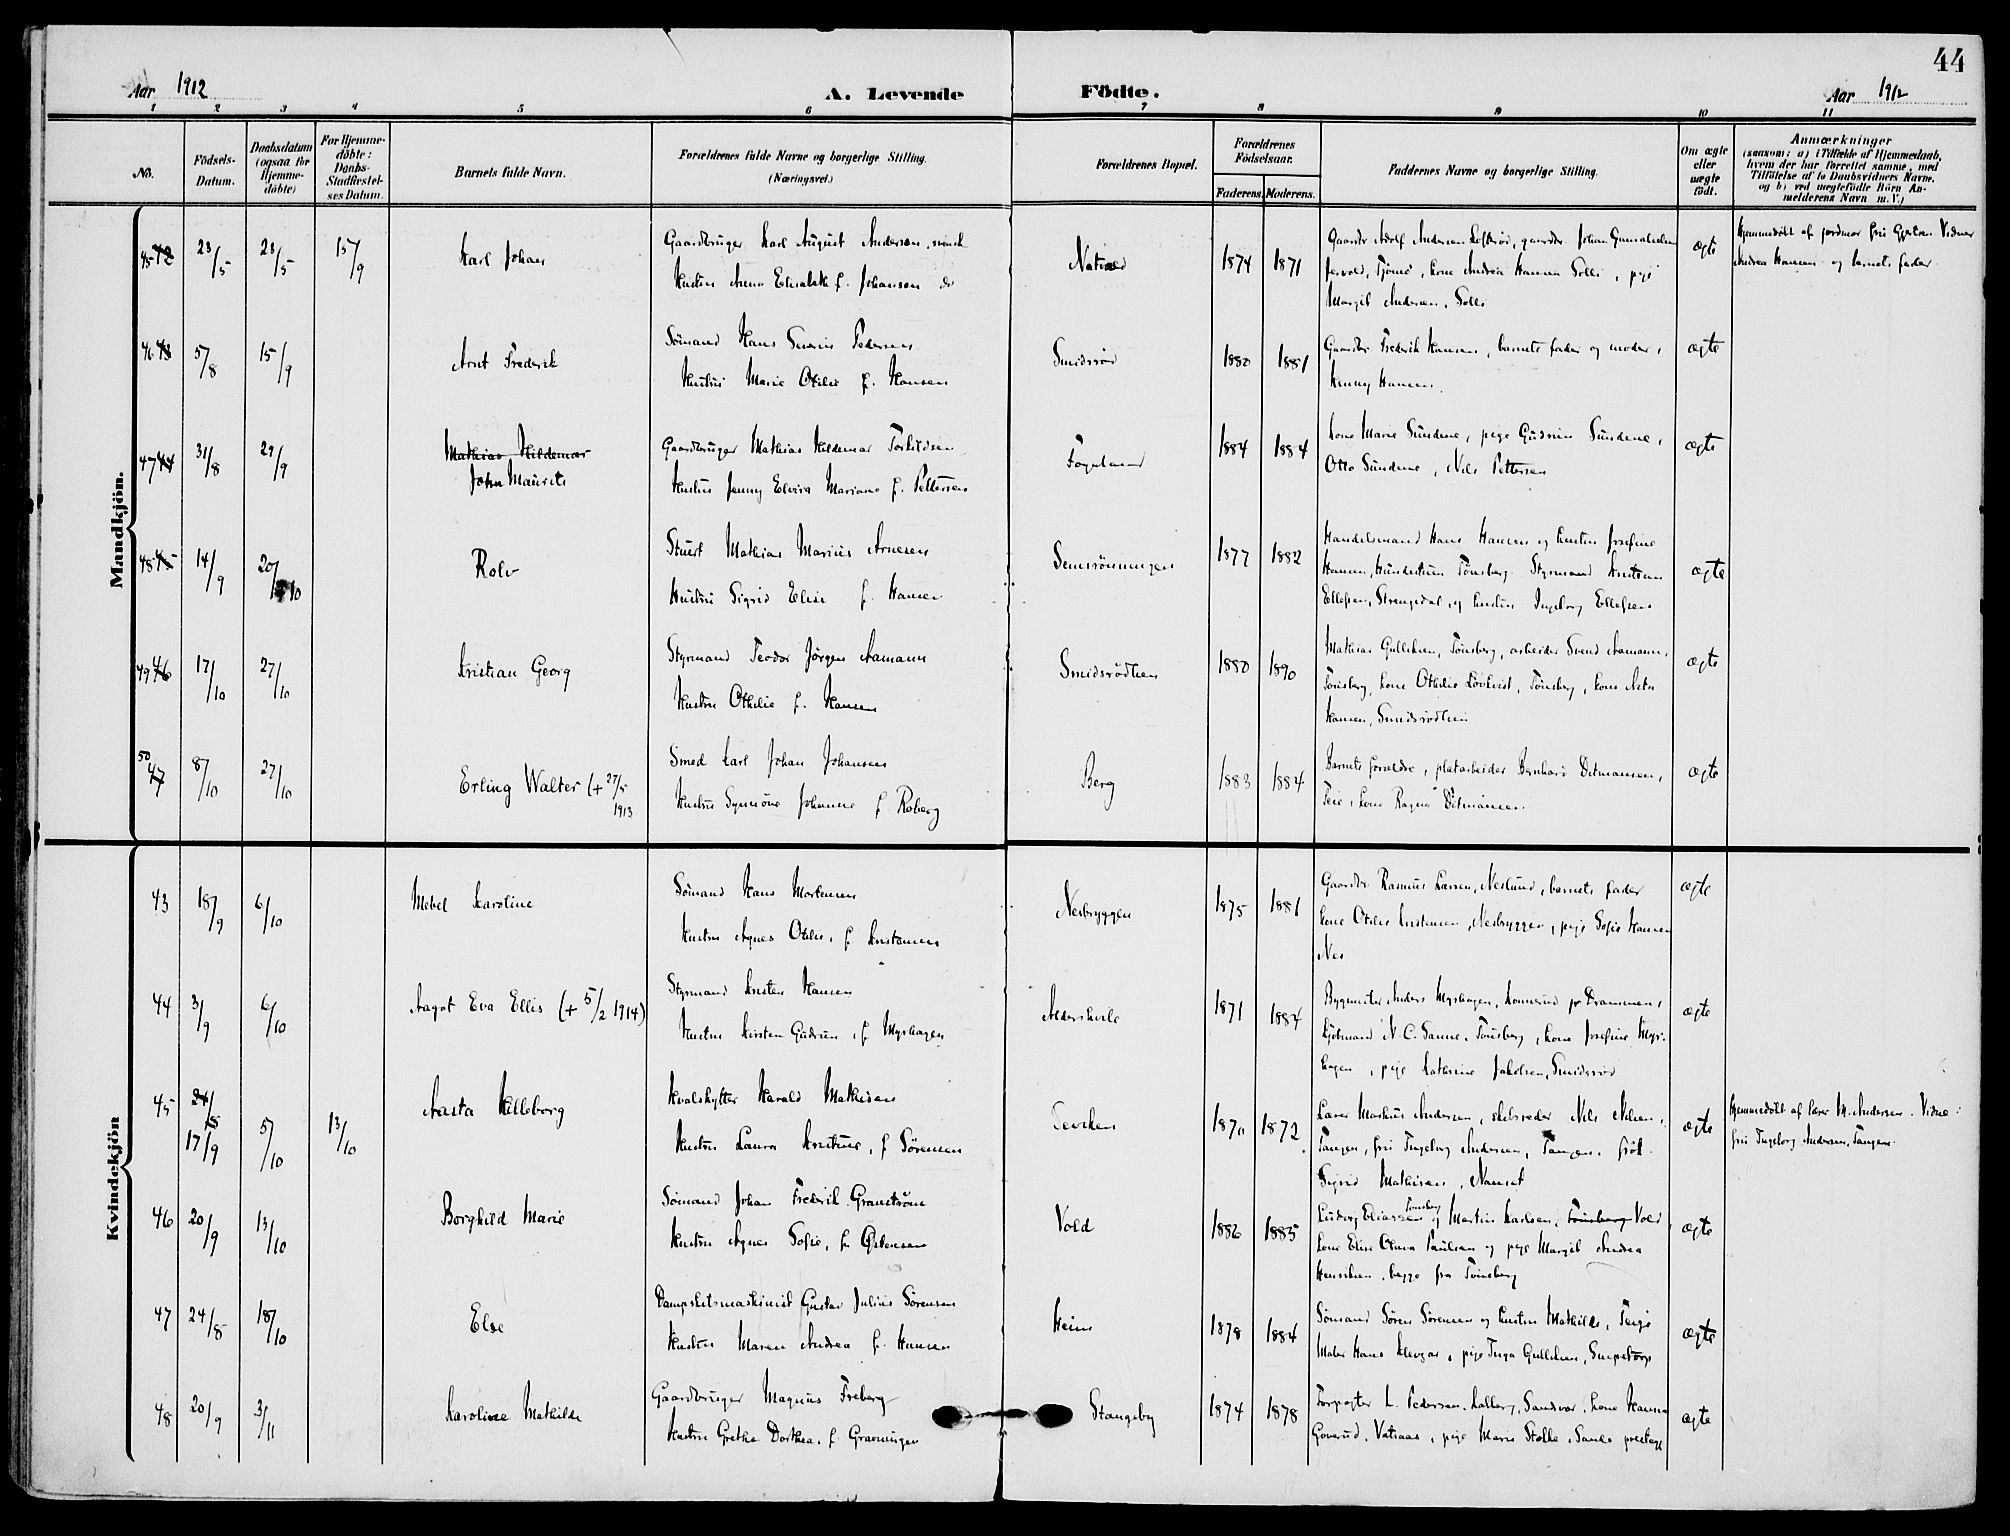 44
Aar 1912
A. Levende Födte.
Aar 1912
1 2 3 4 5 6 7 8 9 10 11
No.
Födsels-Datum.
Daabsdatum (ogsaa for Hjemme-döbte)
For Hjemme-döbte: Daabs-Stadfæstel-ses Datum.
Barnets fulde Navn.
Forældrenes fulde Navne og borgerlige Stilling.
(Næringsvei.)
Forældrenes Bopæl.
Forældrenes Födselsaar.
Faderens. Moderens.
Faddernes Navne og borgerlige Stilling.
Om ægte eller uægte födt.
Anmærkninger
(saasom: a) i Tilfælde af Hjemmedaab,
hvem der har forrettet samme, med
Tilföielse af to Daabsvidners Navne,
og b) ved uægtefödte Börn An-
melderens Navn m. V.)
Mandkjön.
45 42 23/5 23/5 15/9 Karl Johan
Gaardbruger Karl August Andersen, svensk
Hustru Anna Elisabeth f. Johansen do
1874 1871
Gaardbr Adolf Andersen, gaardbr. Johan
Tjömö, kone Andrea Hansen Solli, pige
Margit Andersen, Solli
ægte
Hjemmedöbt af jordmor fru Vidner
Andrea Hansen og barnets fader.
46 43 5/8 15/9 Arnt Frederik
Sömand Hans Severin Pedersen
Hustru Marie Otilie f. Hansen
Smidsröd
1880 1881
Gaardbr Fredrik Hansen, barnets fader og moder,
Henny Hansen.
ægte
47 44 31/8 29/9 Mathias Hildemar
John Maurits
Gaardbruger Mathias Hildemar Torkildsen
Hustru Jenny Elvira Mariane f. Pettersen
1884 1884
Kone Marie Sundene, pige Gudrun Sundene,
Otto Sundene, Nils Pettersen
ægte
48 45 14/9 20/10 Rolv
Stuert Mathias Marius Arnesen
Hustru Sigrid Elise f. Hansen
1877 1882
Handelsmand Hans Hansen og hustru Josefine
Hansen, Tönsberg. Styrmand
Ellefsen, og hustru Ingeborg Ellefsen
ægte
49 46 17/10 27/10 Kristian Georg
Styrmand Teodor Jörgen Aamann
Hustru Othilie f. Hansen
Smidsrödlien
1880 1890
Mathias Gulliksen, Tönsberg, arbeider Svend Aamann,
Tönsberg, kone Othilie Lövkvist, Tönsberg, kone
Hansen, Smidsrödlien
ægte
50 47 8/10 27/10 Erling Walter (+ 27/5 1913
Smed Karl Johan Johansen
Hustru Synnöve Johanne f. Roberg
Berg
1883 1884
Barnets forældre, platarbeider Bernhard Ditmansen,
Teie, kone Ragna Ditmansen.
ægte
Kvindekjön
43 18/9 6/10 Mebel Karoline
Sömand Hans Mortensen
Hustru Agnes Otilie, f. Kristensen
Nesbryggen
1875 1881
Gaardbr. Rasmus Larsen, Neslund, barnets fader
kone Otilie Kristensen, Nesbryggen, pige Sofie Hansen
Nes
ægte
44 3/9 6/10 Aagot Eva Ellis (+ 5/2 1914)
Styrmand Kristen Hansen
Hustru Kirsten Gudrun, f. Myrhagen
Aldershvile
1871 1884
Bygmester Anders Myrhagen, Drammen,
Kjöbmand N. C. Sanne, Tönsberg, kone Josefine Myr-
hagen, pige Kathrine Jakobsen, Smidsröd
ægte
45 24/8 17/9 5/10 13/10 Aasta Hilleborg
Hvalskytter Harald Mathisen
Hustru Laura Kristine, f. Sörensen
1870 1872
Lærer Markus Andersen, skibsreder Nils Nilsen,
Tangen, fru Ingeborg Andersen, Tangen, frök.
Sigrid Mathisen, Nanset
ægte
Hjemmedöbt af lærer M. Andersen. Vidne:
fru Ingeborg Andersen, Tangen.
46 20/9 13/10 Borghild Marie
Sömand Johan Fredrik Granström
Hustru Agnes Sofie, f. Östensen
Vold
1886 1885
Ludvig Eliassen Tönsberg og Martin Karlsen, Tönsberg Vold,
kone Elise Olava Paulsen og pige Margit Andrea
Henriksen, begge fra Tönsberg
ægte
47 24/8 18/10 Else
Dampskibsmaskinist Gustav Julius Sörensen
Hustru Maren Andrea f. Hansen
Heim
1878 1884
Sömand Sören Sörensen og hustru Mathilde, Teige
Maler Hans Klevgar, pige Inga Gulliksen,
ægte
48 20/9 3/11 Karoline Mathilde
Gaardbruger Magnus Freberg
Hustru Grethe Dorthea, f. Gravningen
Stangeby
1874 1878
Forpagter L. Pedersen, Sandvar, kone Hanna
Goverud, Vatnaas, pige Marie Stokke, Sande prestegj
ægte